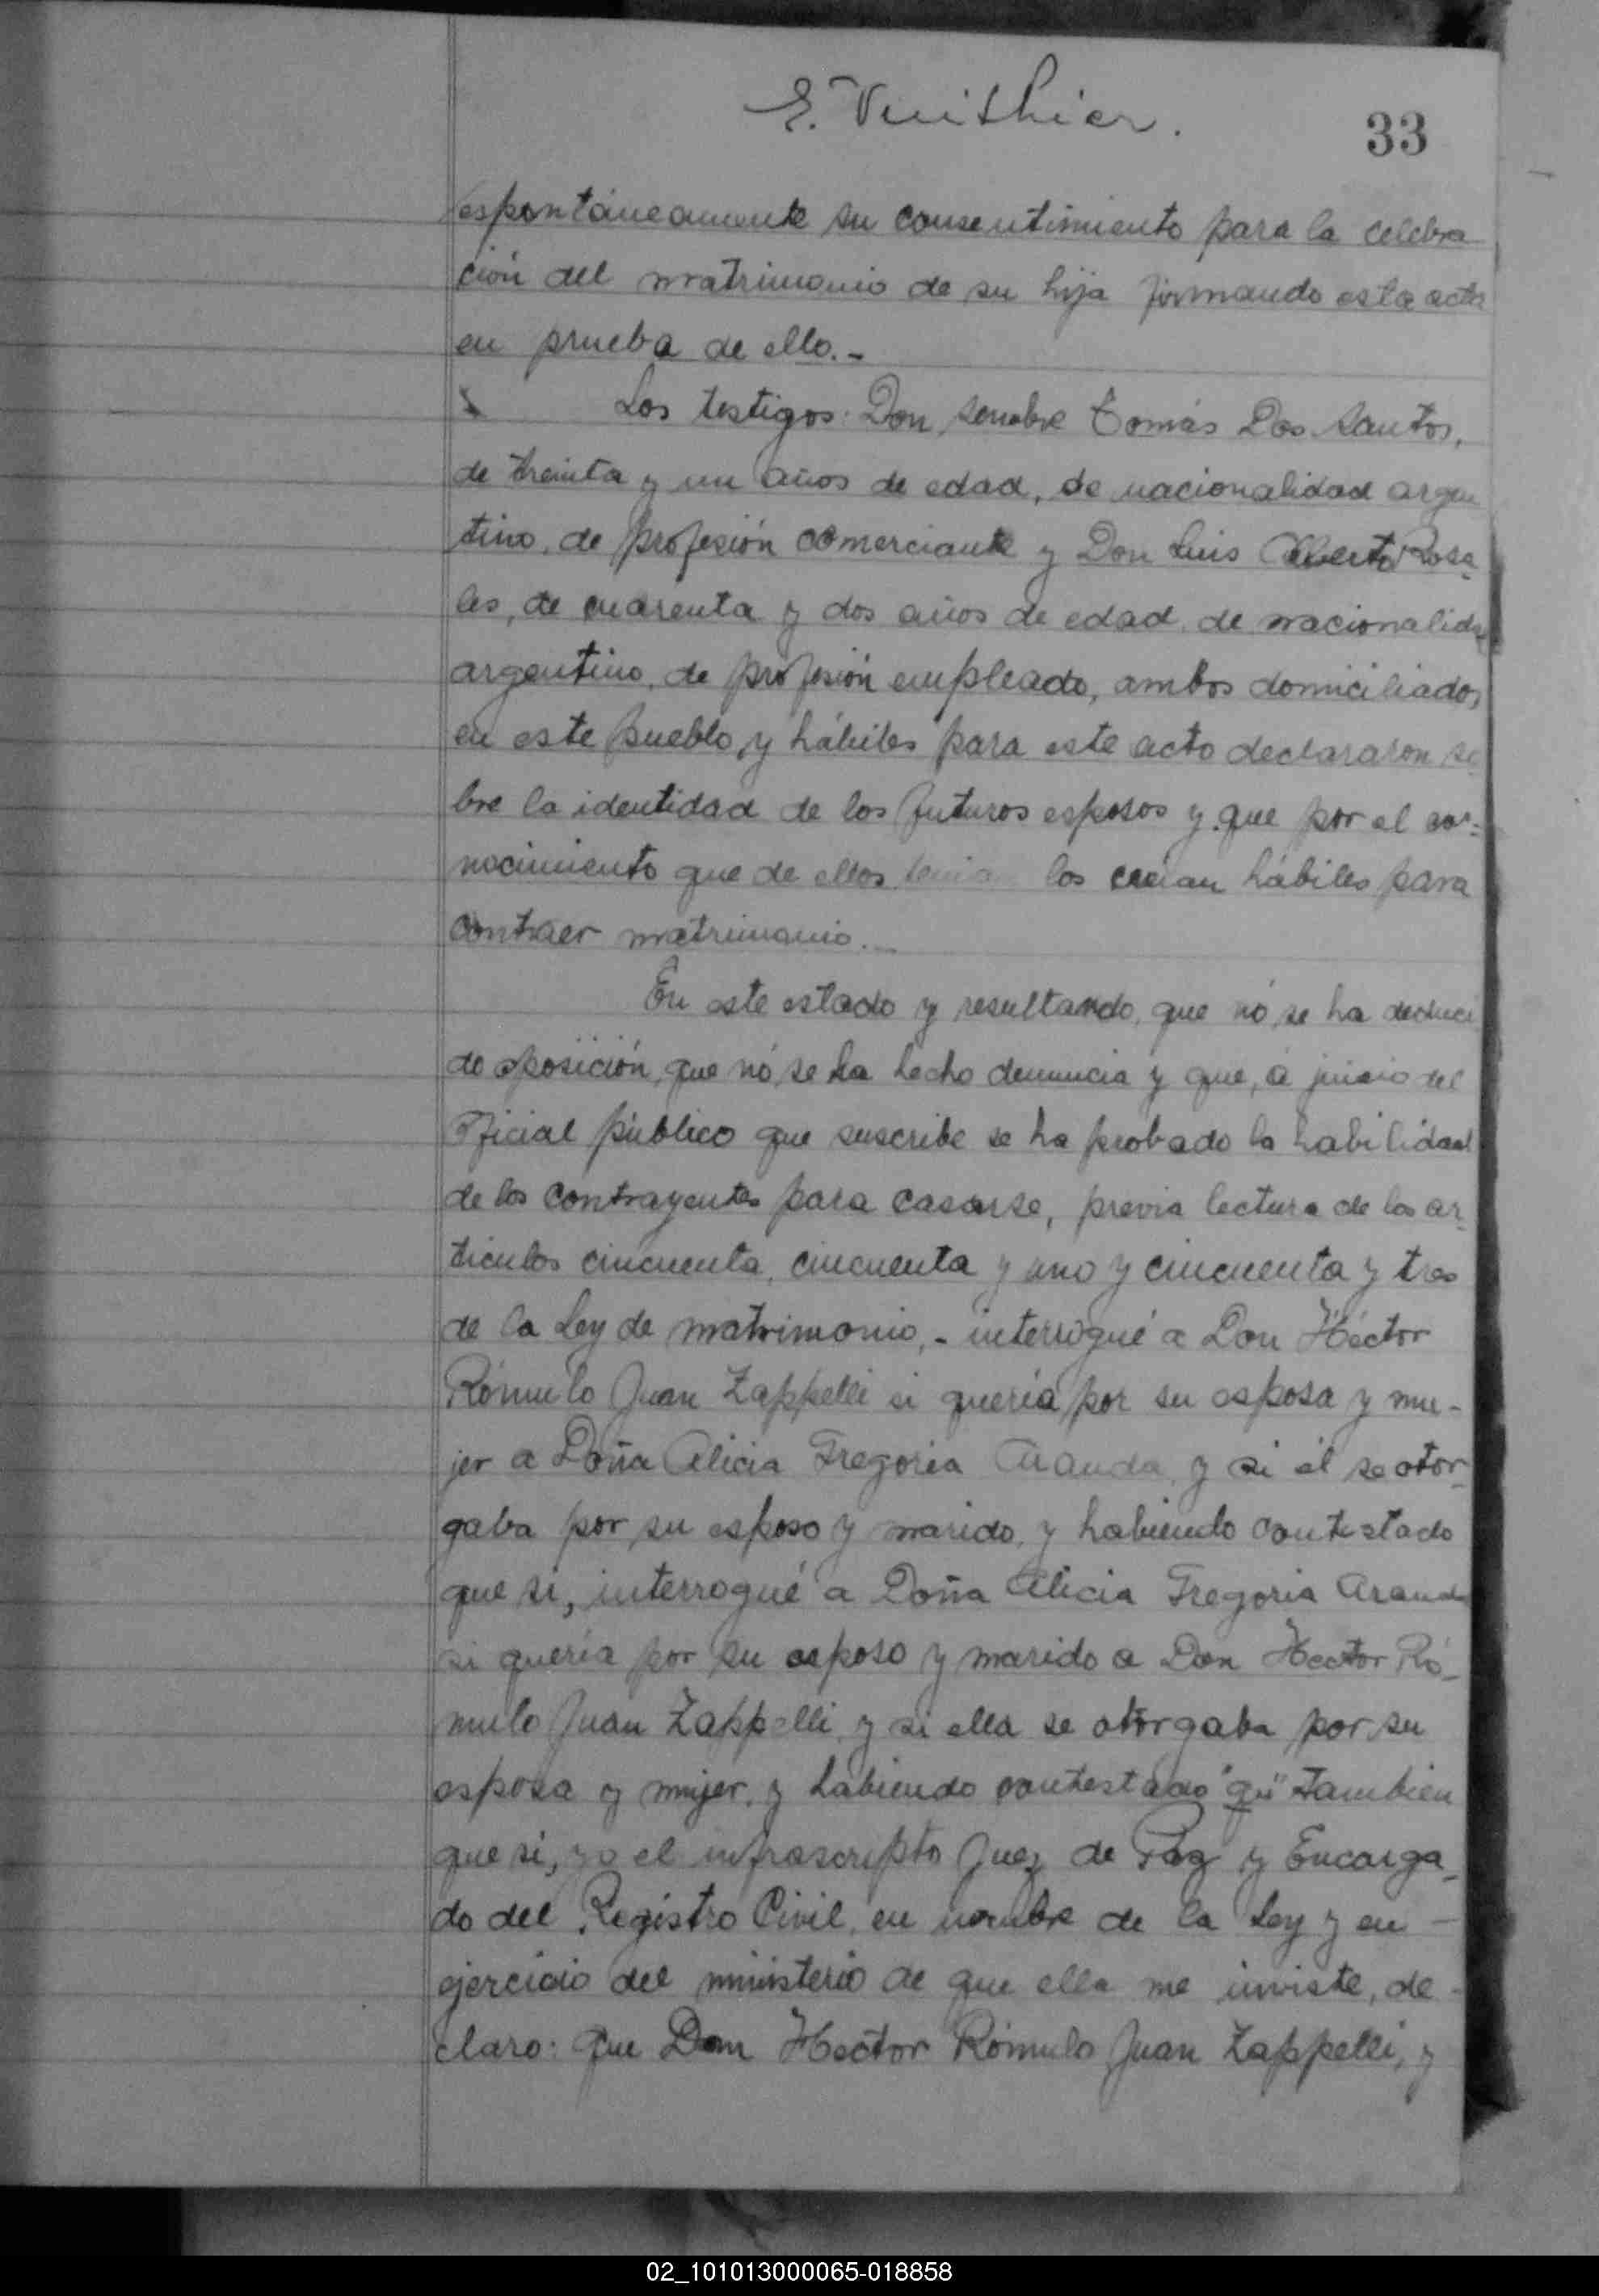 E. Vuithier.
33
espontáneamente su consentimiento para la celebra
ción del matrimonio de su hija firmando esta acta
en prueba de ello.-
Los testigos: Don Tomás Dos Santos,
de treinta y un años de edad, de nacionalidad argen
tino, de profesión comerciante y Don Luis Alberto Rosa-
les, de cuarenta y dos años de edad, de nacionalidad
argentino, de profesión empleado, ambos domiciliados
en este pueblo y hábiles para este acto declararon so
bre la identidad de los futuros esposos y que por el co-
nocimiento que de ellos tenian los creian hábiles para
contraer matrimonio.-
En este estado y resultando, que nó se ha deduci
do oposición, que nó se ha hecho denuncia y que, á juicio del
Oficial público que suscribe se ha probado la habilidad
de los contrayentes para casarse, previa lectura de los ar-
ticulos cincuenta, cincuenta y uno y cincuenta y tres
de la Ley de matrimonio,- interrogué a Don Héctor
Rómulo Juan Zappelli si quería por su esposa y mu-
jer a Doña Alicia Gregoria Aranda, y si él se otor-
gaba por su esposo y marido, y habiendo contestado
que si, interrogué a Doña Alicia Gregoria Aranda
si quería por su esposo y marido a Don Hector Ró-
mulo Juan Zappelli, y si ella se otorgaba por su
esposa y mujer, y habiendo contestado "qu" tambien
que si, yo el infrascripto Juez de Paz y Encarga-
do del Registro Civil, en nombre de la Ley y en -
ejercicio del ministerio de que ella me inviste, de-
claro: Que Don Hector Rómulo Juan Zappelli, y
02_101013000065-018858